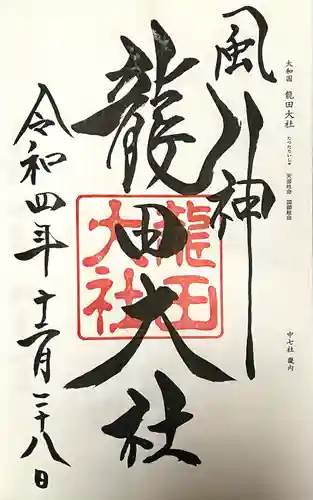 大和国 龍田大社
たつたたいしゃ
天御柱命 国御柱命
中七社 畿内
風神
龍田大社
龍田
大社
令和四年十二月二十八日